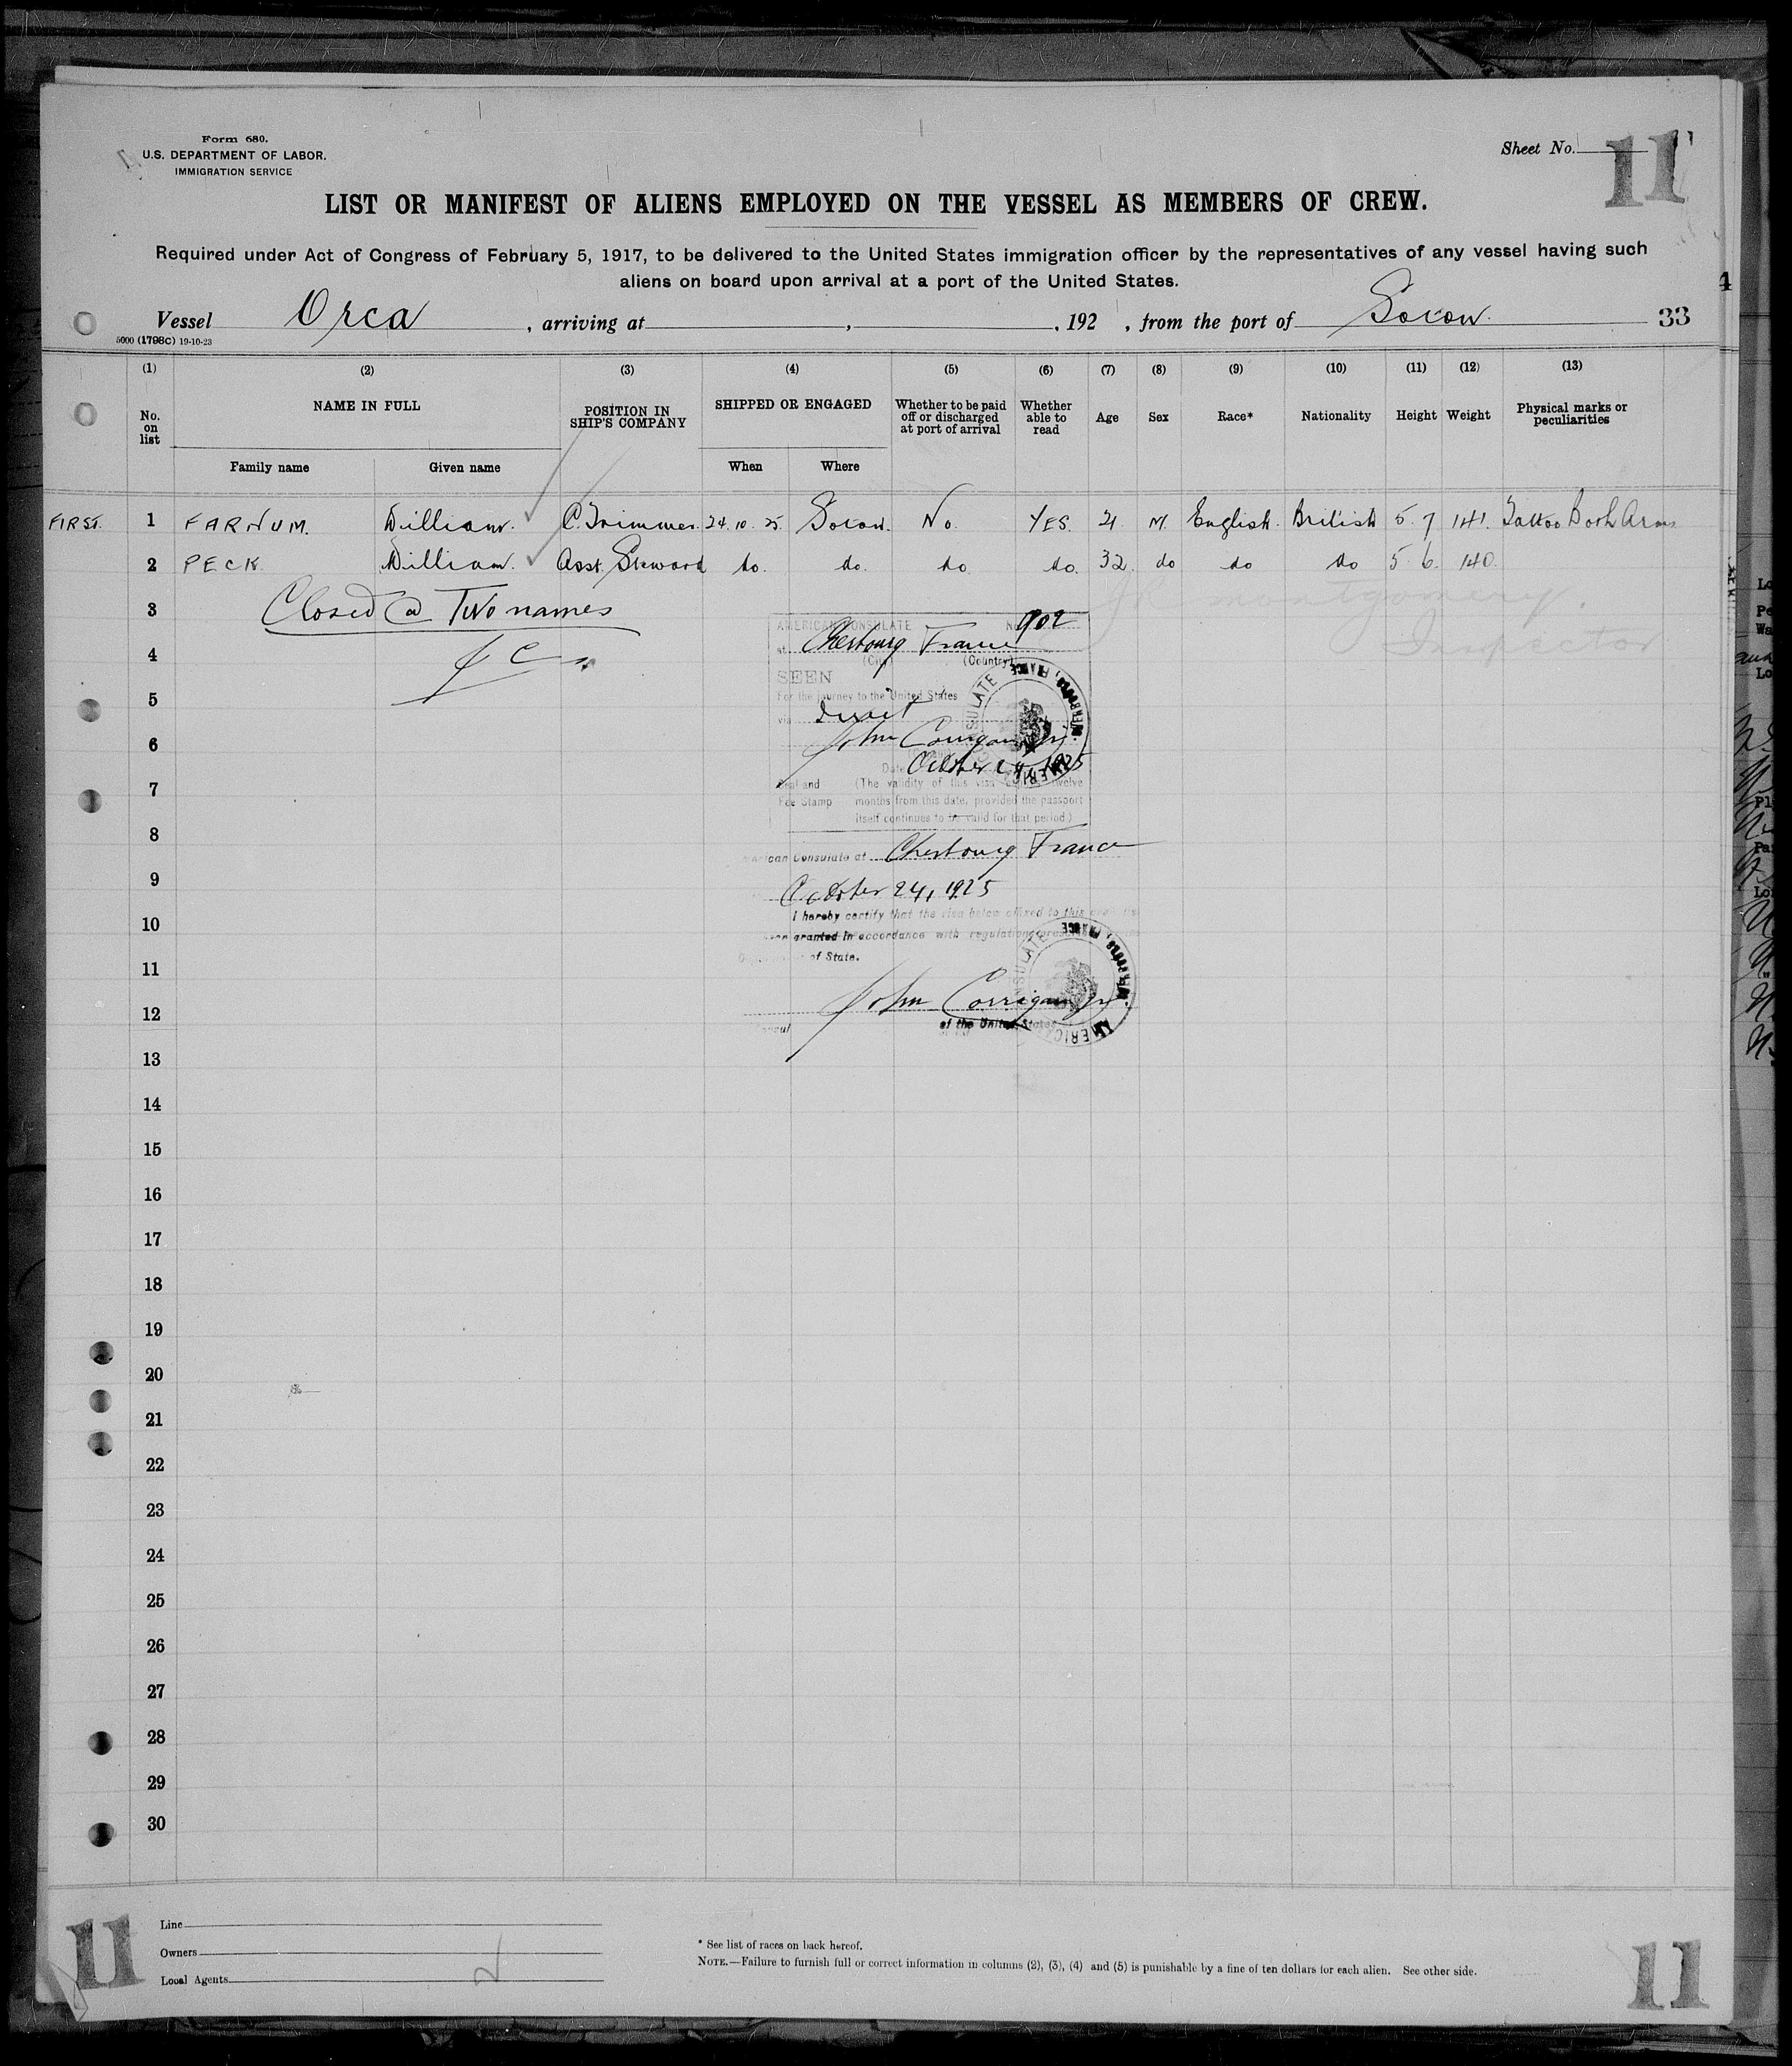 Form 680.
U.S. DEPARTMENT OF LABOR.
IMMIGRATION SERVICE
Sheet No.
11
LIST OR MANIFEST OF ALIENS EMPLOYED ON THE VESSEL AS MEMBERS OF CREW.
Required under Act of Congress of February 5, 1917, to be delivered to the United States immigration officer by the representatives of any vessel having such
aliens on board upon arrival at a port of the United States.
Vessel Orca , arriving at , , 192 , from the port of Soton. 33
5000 (1798C) 19-10-23
(1) (2) (3) (4) (5) (6) (7) (8) (9) (10) (11) (12) (13)
No. on list
NAME IN FULL
Family name
Given name
POSITION IN SHIP'S COMPANY
SHIPPED OR ENGAGED
When
Where
Whether to be paid off or discharged at port of arrival
Whether able to read
Age
Sex
Race*
Nationality
Height
Weight
Physical marks or peculiarities
FIRST. 1 FARNUM. William. C. Trimmer. 24.10.25. Soton. No. YES. 21. M. English. British 5. 7 141. Tattoo Both Arms
2 PECK. William. Asst. Steward do. do. do do. 32. do do do 5 6. 140.
3 Closed @ Two names
JR Montgomery.
Inspector
4 JC
5
6
7
8
9
10
11
12
13
14
15
16
17
18
19
20
21
22
23
24
25
26
27
28
29
30
AMERICAN CONSULATE No. 902
at Cherbourg France
(City) (Country)
SEEN
For the journey to the United States
via direct
John Corrigan Jr.
Date October 24, 1925
Seal and Fee Stamp
(The validity of this visa twelve
months from this date, provided the passport
itself continues to be valid for that period.)
American Consulate at Cherbourg France
October 24, 1925
I hereby certify that the visa below affixed to this
been granted in accordance with regulations
of State.
John Corrigan Jr
Consul of the United States
11
Line
Owners
Local Agents
* See list of races on back hereof.
NOTE.—Failure to furnish full or correct information in columns (2), (3), (4) and (5) is punishable by a fine of ten dollars for each alien. See other side.
11